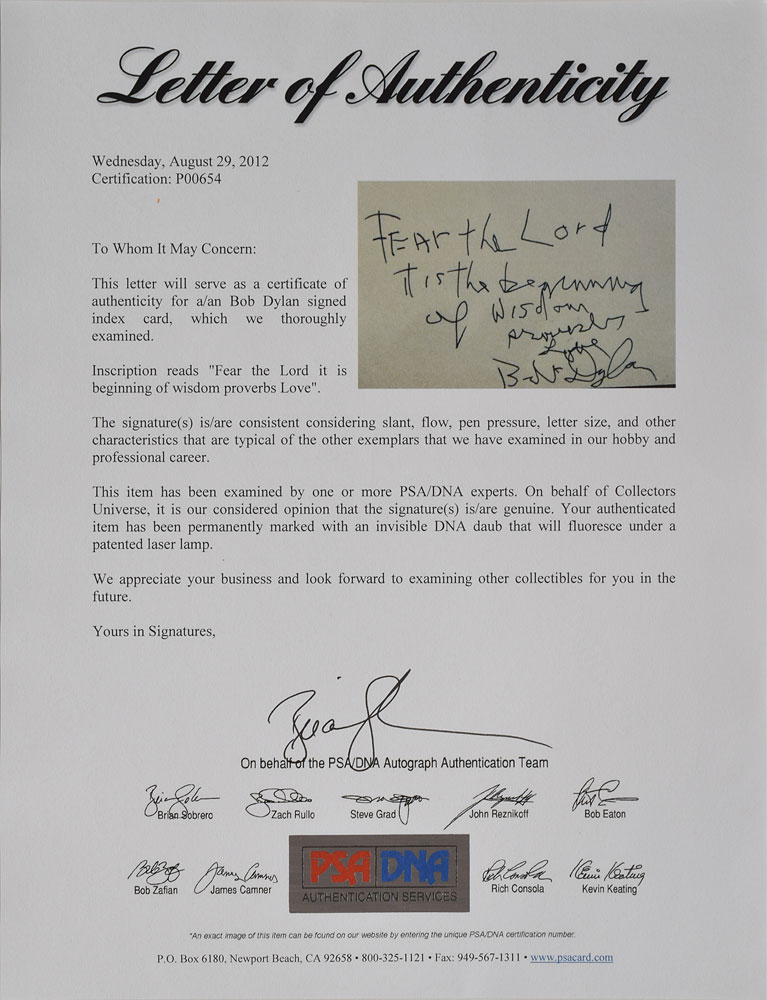 Letter of Authenticity
Wednesday, August 29, 2012
Certification: P00654
To Whom It May Concern:
This letter will serve as a certificate of
authenticity for a/an Bob Dylan signed
index card, which we thoroughly
examined.
Inscription reads "Fear the Lord it is
beginning of wisdom proverbs Love".
FEAr the Lord
it is the beginning
of wisdom
proverbs
Love
Bob Dylan
The signature(s) is/are consistent considering slant, flow, pen pressure, letter size, and other
characteristics that are typical of the other exemplars that we have examined in our hobby and
professional career.
This item has been examined by one or more PSA/DNA experts. On behalf of Collectors
Universe, it is our considered opinion that the signature(s) is/are genuine. Your authenticated
item has been permanently marked with an invisible DNA daub that will fluoresce under a
patented laser lamp.
We appreciate your business and look forward to examining other collectibles for you in the
future.
Yours in Signatures,
On behalf of the PSA/DNA Autograph Authentication Team
Brian Sobrero Zach Rullo Steve Grad John Reznikoff Bob Eaton
Bob Zafian James Camner Rich Consola Kevin Keating
PSA DNA
AUTHENTICATION SERVICES
*An exact image of this item can be found on our website by entering the unique PSA/DNA certification number.
P.O. Box 6180, Newport Beach, CA 92658 • 800-325-1121 • Fax: 949-567-1311 • www.psacard.com